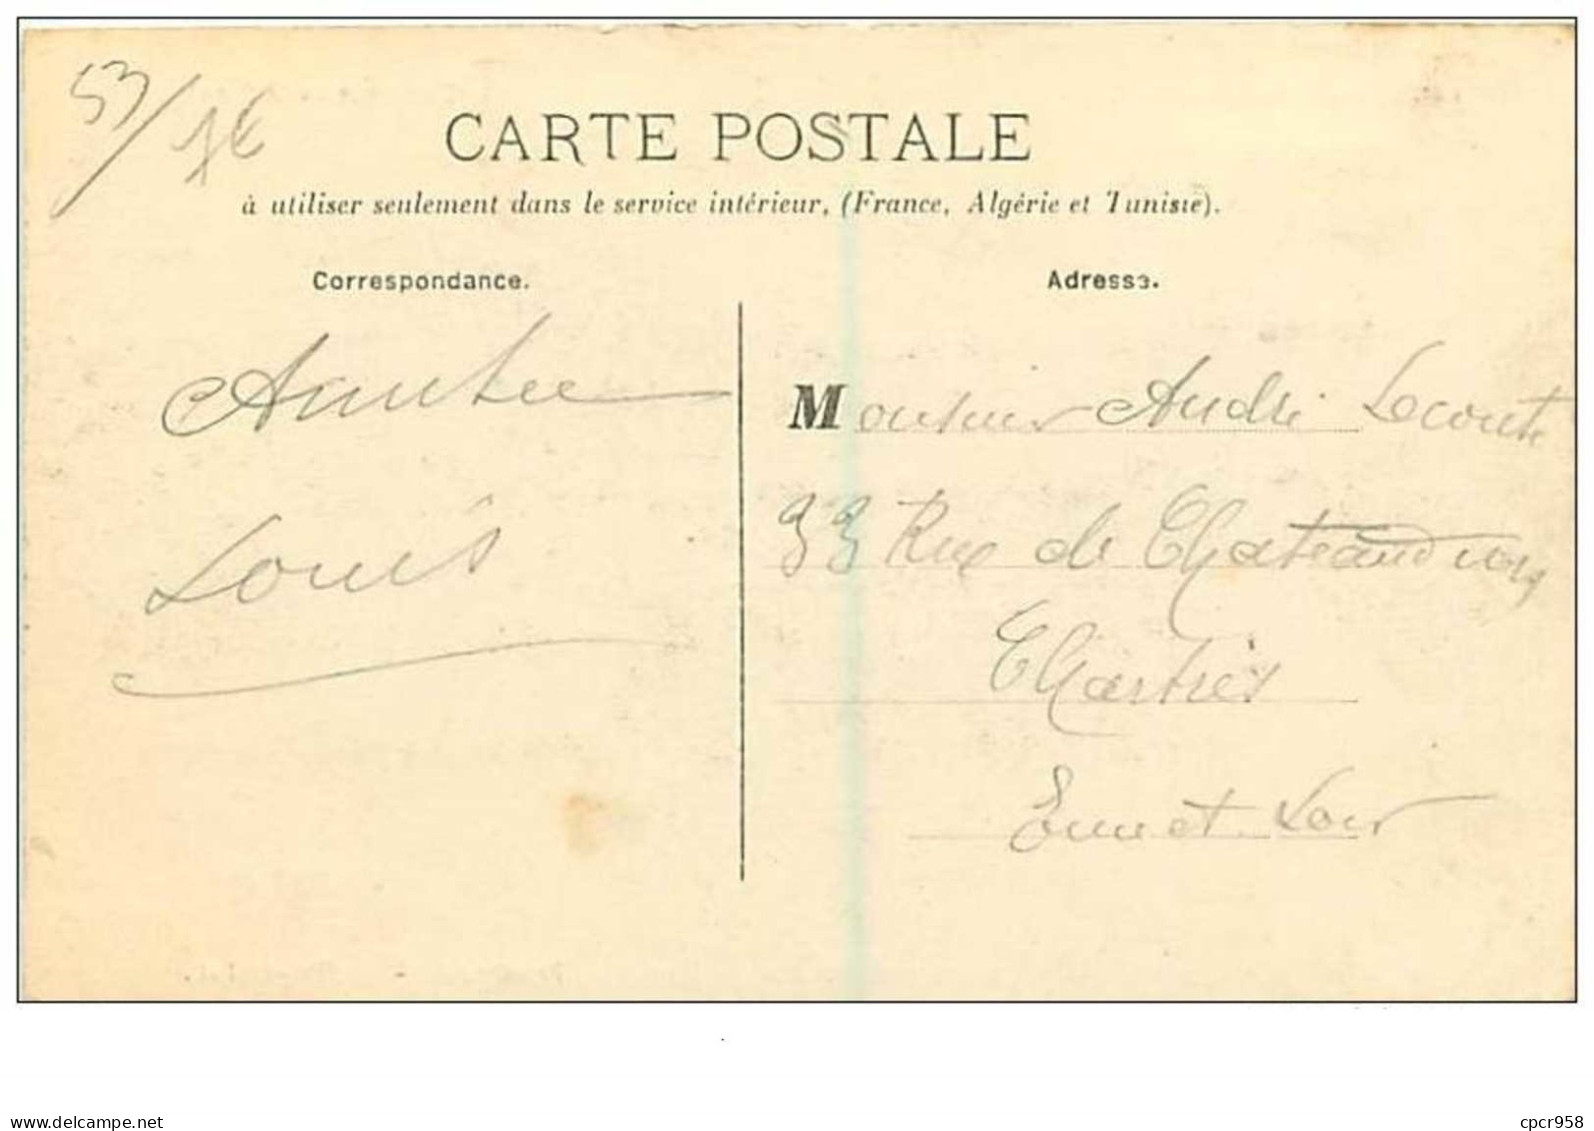 53/ 1€
CARTE POSTALE
à utiliser seulement dans le service intérieur, (France, Algérie et Tunisie).
Correspondance.
Amitiée
Louis
Adresse.
Monsieur André Lecomte
33 Rue de Chateaudun
Chartres
Eure et Loir
www.delcampe.net
cpcr958